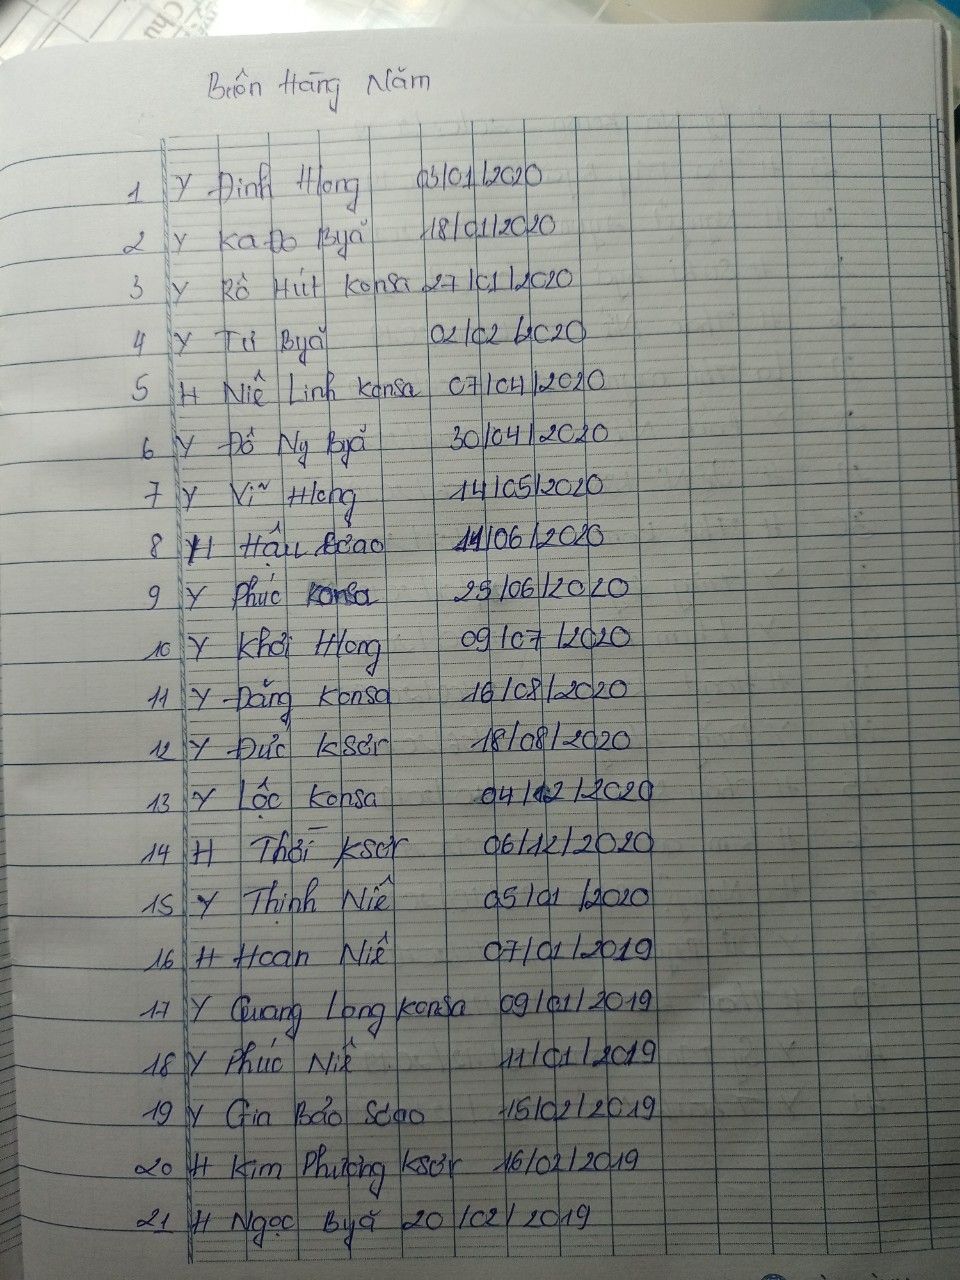 Buôn Hằng Năm
1 Y Đinh Hlong 03/01/2020
2 Y Ka Đo Byă 18/01/2020
3 Y Rô Hút Konsa 27/01/2020
4 Y Tư Byă 02/02/2020
5 H Niê Linh Konsa 07/04/2020
6 Y Đô Ny Byă 30/04/2020
7 Y Vĩ Hlong 14/05/2020
8 H Hậu 11/06/2020
9 Y Phúc Konsa 29/06/2020
10 Y Khởi Hlong 09/07/2020
11 Y Đăng Konsa 16/08/2020
12 Y Đức Ksơr 18/08/2020
13 Y Lộc Konsa 04/12/2020
14 H Ksơr 06/12/2020
15 Y Thịnh Niê 05/01/2020
16 H Hoan Niê 07/01/2019
17 Y Quang Long Konsa 09/01/2019
18 Y Phúc Niê 11/01/2019
19 Y Gia Bảo Sơao 15/02/2019
20 H Kim Phượng Ksơr 16/02/2019
21 H Ngọc Byă 20/02/2019